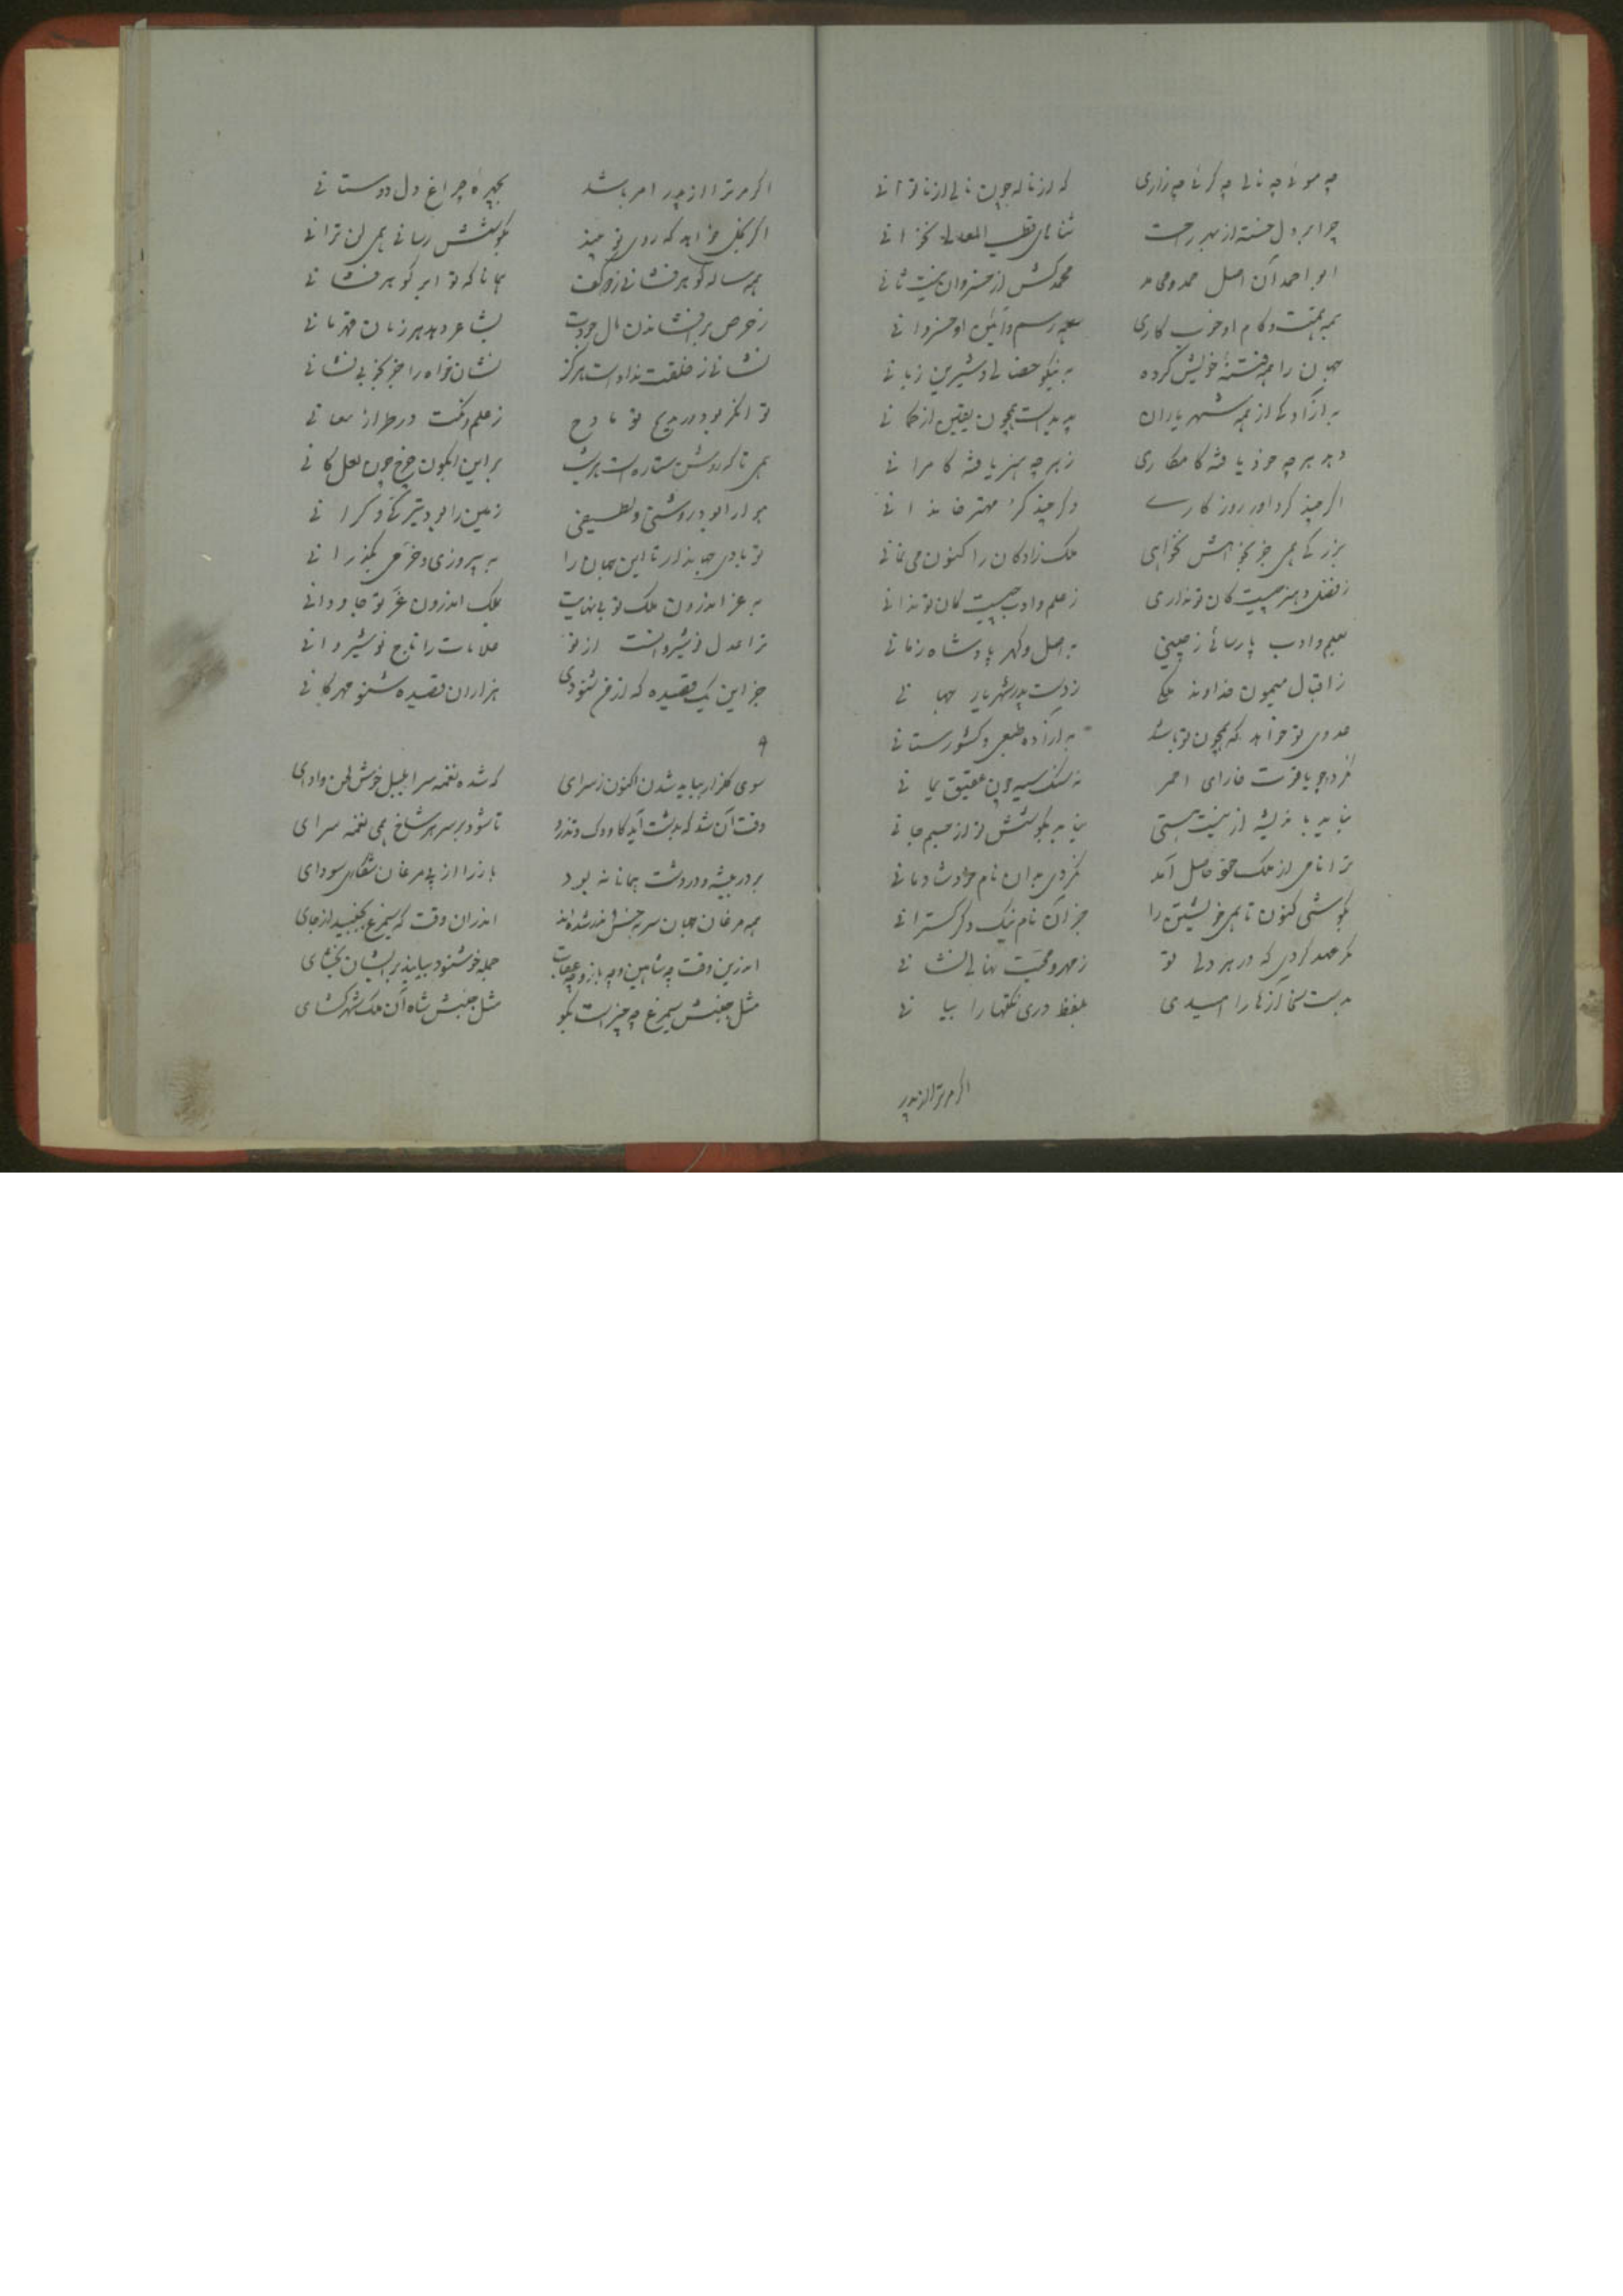 چه موئی چه نالی چه گرئی چه زاری که از ناله چون نالی از ناتوانی
چرا بر دل خسته از بهر راحت ثناهای قطب المعالی نخوانی
ابو احمد آن اصل حمد و محامد محمد کش از خسروان نیست ثانی
همه همت و کام او خوب کاری همه رسم و آئین او خسروانی
جهان را همه فتنهٔ خویش کرده به نیکو خصالی و شیرین زبانی
به آزادگی از همه شهریاران پدیدست همچون یقین از گمانی
در هر چه خود یافته کامگاری ز هر چه هنر یافته کامرانی
اگر چند گرد آورد روزگاری دگر چند گرد مهتر خاندانی
بزرگی همی جز بخواهش نخواهی ملک زادگان را کنون می نمانی
ز فضل و هنر چیست کان تو نداری ز علم و ادب چیست کان تو ندانی
بعلم و ادب پارسائی زمینی به اصل و گهر پادشاه زمانی
ز اقبال میمون خداوند ملکی ز دست پدر شهریار جهانی
عدوی تو خواهد که همچون تو باشد به آزاده طبعی و کشورستانی
نگردد چو یاقوت خارای احمر نه سنگ سیه چون عقیق یمانی
نیاید باندیشه از نیست هستی نیاید بکوشش ز از جسم جانی
ترا نامی از ملک حق حاصل آمد نکردی بدان نام خود شادمانی
بکوشی کنون تا همی خویشتن را جز آن نام نیک دگر گسترانی
مگر عهد کردی که در هر دلی تو ز مهر و محبت نهالی نشانی
به دست سخا آزها را امیدی بلفظ دری نکتها را بیانی
اگر مر ترا از پدر
اگر مر ترا از پدر امر باشد بچهره چراغ دل دوستانی
اگر بخل خواهد که روی تو بیند بکوشش رسانی همی لن ترانی
همه ساله گوهر فشانی ز دو کف همانا که تو ابر گوهر فشانی
ز حرص بر افشاندن مال جودت بشاعر دهد هر زمان قهرمانی
نشانی ز خلقت ندادست هرگز نشان خواه را جز بخز بی نشانی
توانگر بود در مدیح تو مادح ز علم و نکت در طراز معانی
همی تا که روشن ستاره است هر شب بر این آبگون چرخ چون لعل کانی
هوا را بود روشنی و لطیفی زمین را بود تیرگی و گرانی
تو بادی جهاندار تا این جهان را به پیروزی و خرمی بگذرانی
به عز اندرون ملک تو بی نهایت بملک اندرون عز تو جاودانی
ترا عدل نوشیروانست از تو غلامات را تاج نوشیروانی
جز این یک قصیده که از من شنودی هزاران قصیده شنو مهرگانی
۹
سوی گلزار بباید شدن اکنون ز سرای که شده نغمه سرا بلبل خوش لحن و ادای
وقت آن شد که بدشت آید کاووک و تذرو تا شود بر سر هر شاخ همی نغمه سرای
بر در بیشه و در دشت همانا نه بود باز را از پی مرغان شکاری سودای
همه مرغان جهان سر به خسش اندر شده اند اندران وقت که سیمرغ بجنبید از جای
اندرین وقت چه شاهین و چه باز و چه عقاب جمله خوشنود بیایند برایشان بخشای
مثل جنبش سیمرغ چه چیز است بگو مثل جنبش شاه آن ملک شهر گشای